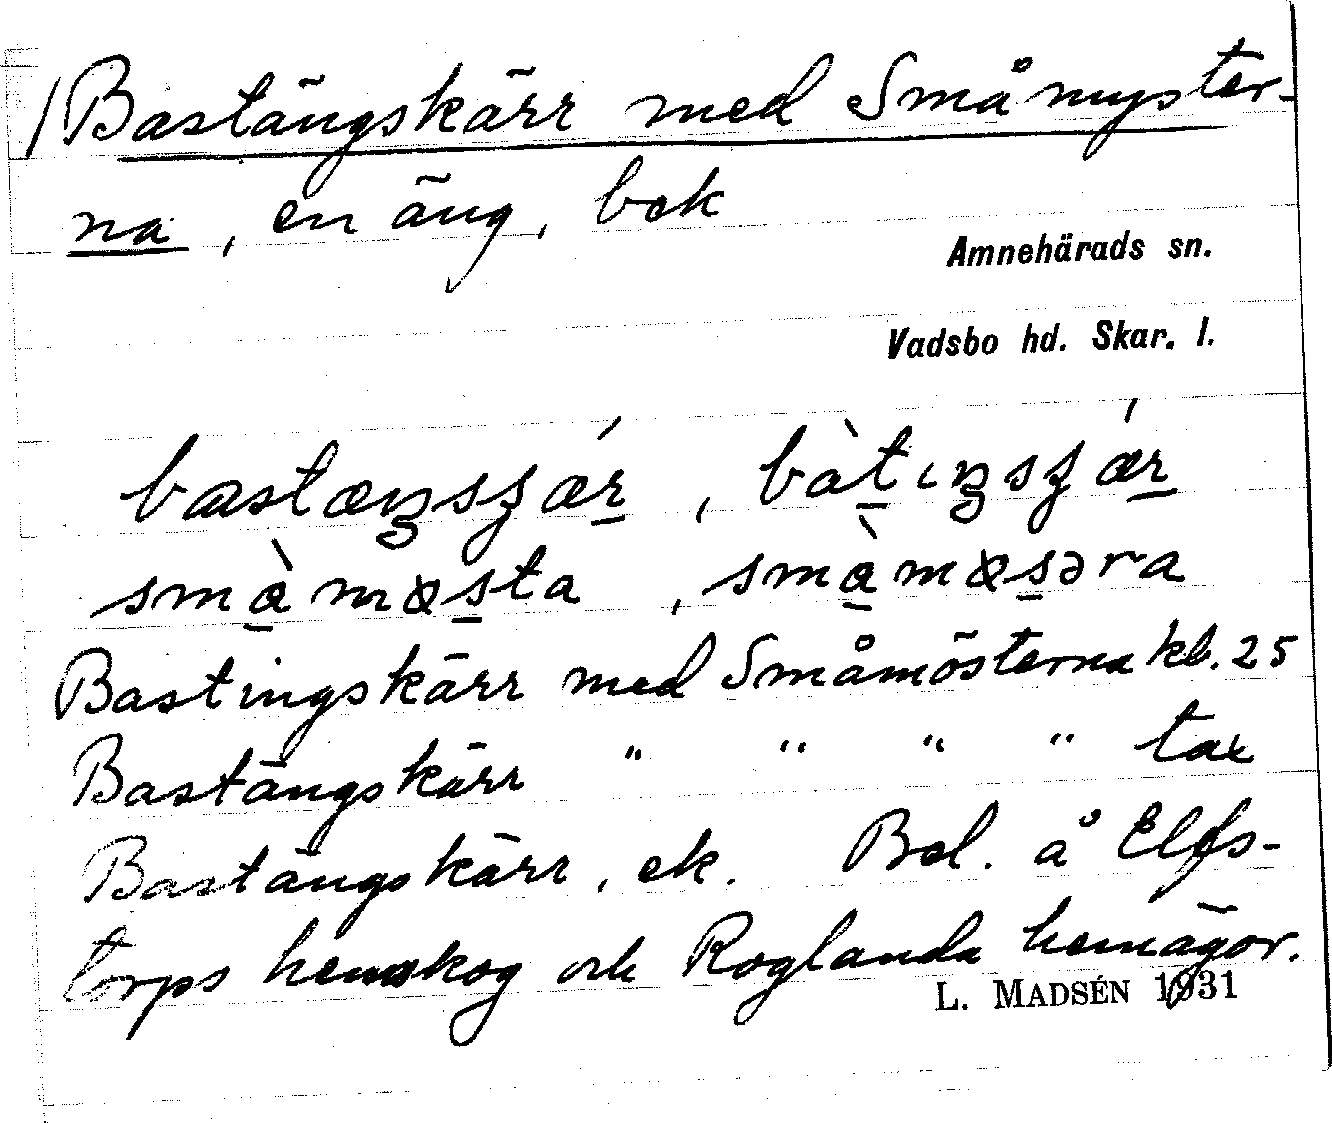 /Bastängskärr med Småmyster-
na, en äng, bek
Amnehärads sn.
Vadsbo hd. Skar. l.
bastæŋsʒǽr, bàtɩŋsʒǽr
smàmøsta, smàmøsəra
Bastingskärr med Småmösterna kb. 25
Bastängskärr " " " " tax
Bastängskärr, ek. Bel. å Elfs-
torps hemskog och Roglanda hemägor.
L. MADSÉN 1931